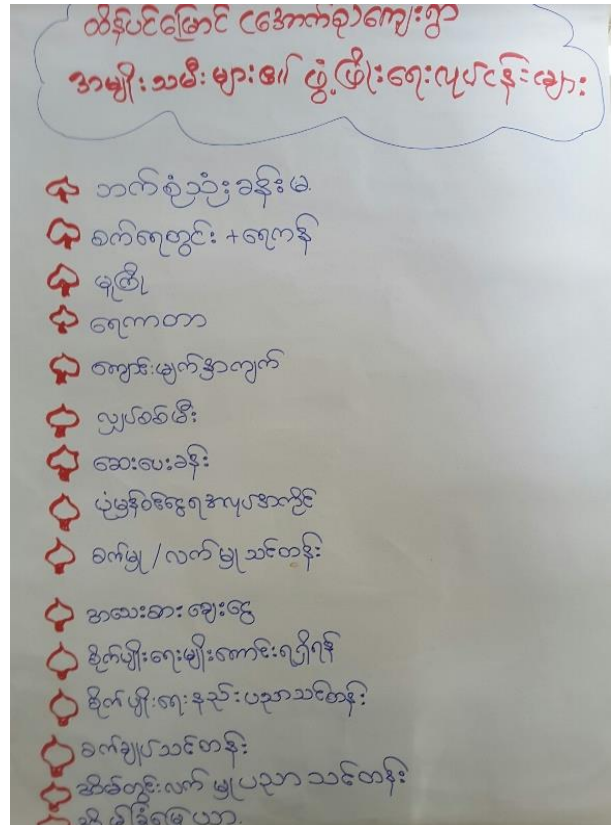 ထိန်ပင်မြောင် (အောက်စု)ကျေးရွာ
အမျိုးသမီးများ၏ ဖွံ့ဖြိုးရေးလုပ်ငန်းများ
ဘက်စုံသုံးခန်းမ
စက်ရေတွင်း + ရေကန်
မူကြို
ရေကာတာ
ကျောင်းမျက်နှာကျက်
လျှပ်စစ်မီး
ဆေးပေးခန်း
ပုံမှန်ဝင်ငွေရအလုပ်အကိုင်
စက်မှု / လက်မှုသင်တန်း
အသေးစားချေးငွေ
စိုက်ပျိုးရေးမျိုးကောင်းရရှိရန်
စိုက်ပျိုးရေးနည်းပညာသင်တန်း
စက်ချုပ်သင်တန်း
အိမ်တွင်းလက်မှုပညာသင်တန်း
အိမ်ခြံမြေယာ